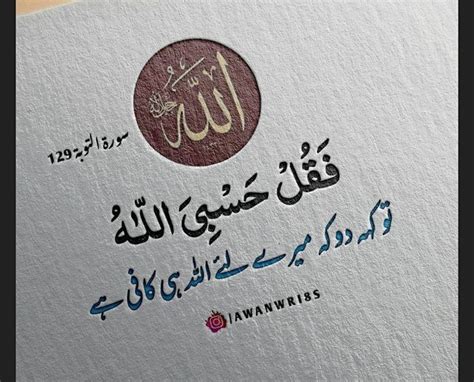 الله جل جلاله
سورۃ التوبۃ 129
فَقُلْ حَسْبِيَ اللّٰهُ
تو کہہ دو کہ میرے لئے اللہ ہی کافی ہے
/AWANWRI8S